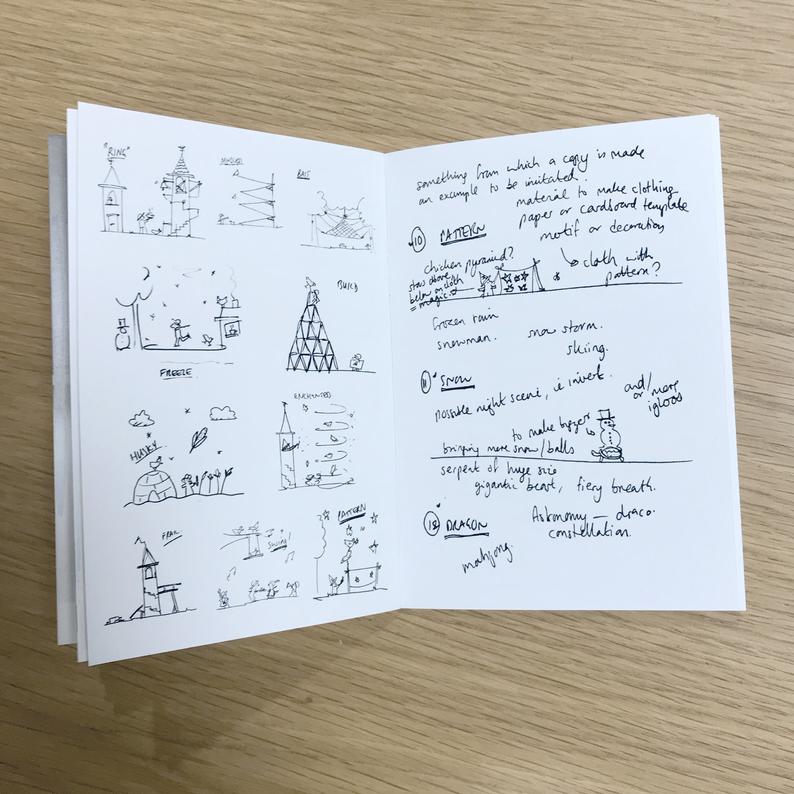 "RING"
MINDLESS
BAIT
BUILD
FREEZE
ENCHANTED
HUSKY
FRAIL
Swing!
PATTERN
something from which a copy is made
an example to be imitated.
material to make clothing
paper or cardboard template
motif or decoration
10 PATTERN
chicken pyramid?
stars above
below on cloth
= magic?
cloth with
pattern?
frozen rain
snowman.
snow storm.
skiing.
11 SNOW
possible night scene, ie invert.
and/
or more
igloos
to make bigger
bringing more snow/balls
serpent of huge size
gigantic beast, fiery breath.
12 DRAGON
Astronomy — draco.
constellation.
mahjong.